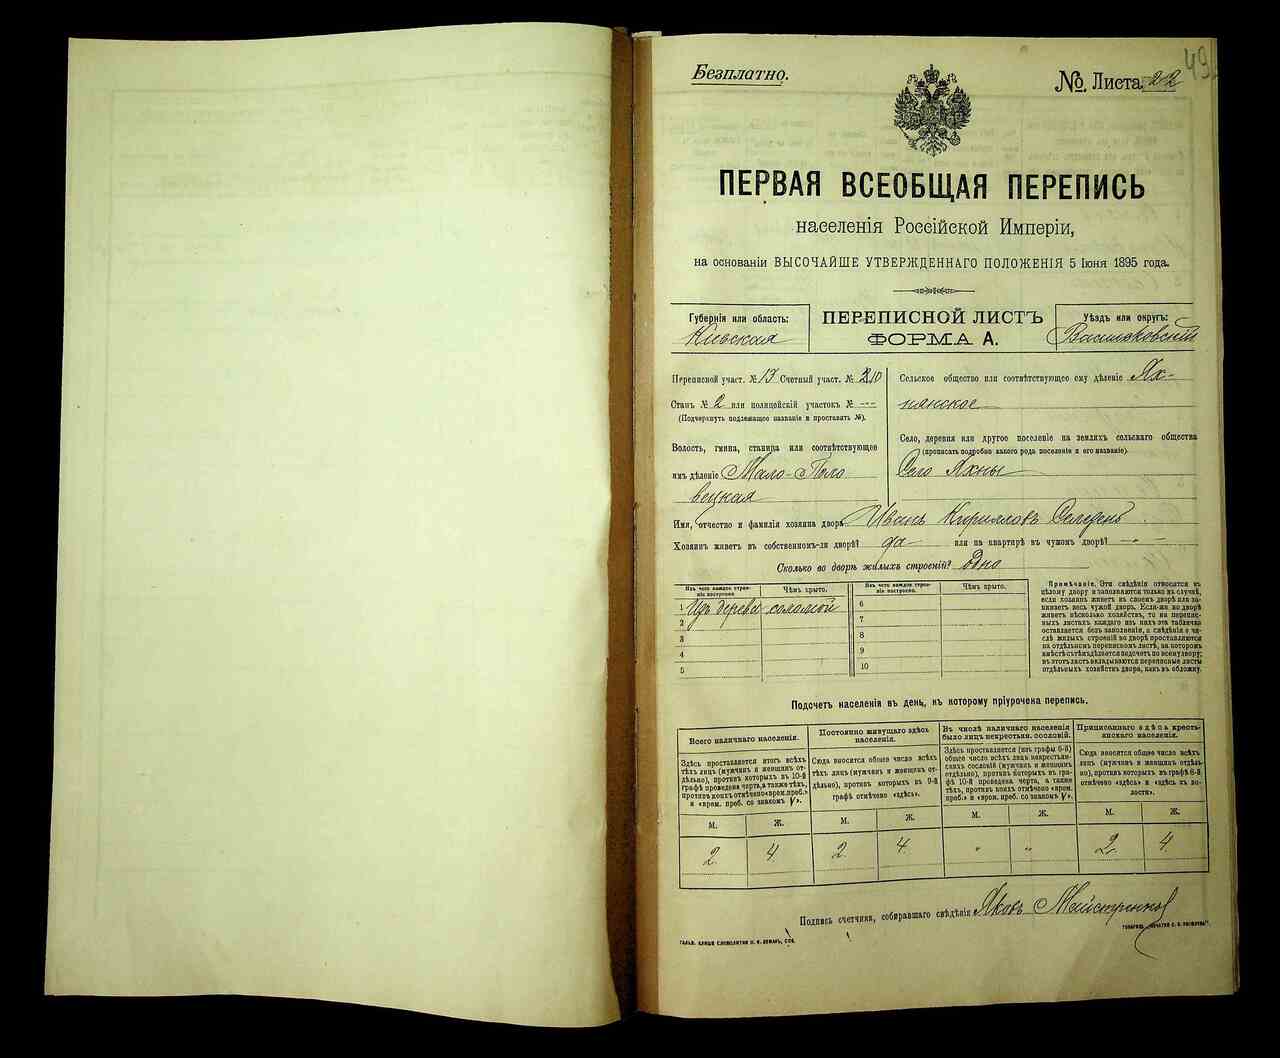 49
Безплатно.
№ Листа 22
ПЕРВАЯ ВСЕОБЩАЯ ПЕРЕПИСЬ
населенія Россійской Имперіи,
на основаніи ВЫСОЧАЙШЕ УТВЕРЖДЕННАГО ПОЛОЖЕНІЯ 5 Іюня 1895 года.
Губернія или область:
Кіевская
ПЕРЕПИСНОЙ ЛИСТЪ
ФОРМА А.
Уѣздъ или округъ:
Васильковскій
Переписной участ. № 13 Счетный участ. № 210
Станъ № 2 или полицейскій участокъ № ---
(Подчеркнуть подлежащее названіе и проставить №).
Волость, гмина, станица или соотвѣтствующее
имъ дѣленіе Мало-Поло
вецкая
Сельское общество или соотвѣтствующее ему дѣленіе Ях-
нянское
Село, деревня или другое поселеніе на земляхъ сельскаго общества
(прописать подробно какого рода поселеніе и его названіе)
Село Яхны
Имя, отчество и фамилія хозяина двора Иванъ Кирилловъ Селедень
Хозяинъ живетъ въ собственномъ-ли дворѣ? да или на квартирѣ въ чужомъ дворѣ? —
Сколько во дворѣ жилыхъ строеній? Одно
Изъ чего каждое строе-
ніе построено.
Чѣмъ крыто.
Изъ чего каждое строе-
ніе построено.
Чѣмъ крыто.
1 Изъ дерева соломой
2
3
4
5
6
7
8
9
10
Примѣчаніе. Эти свѣдѣнія относятся къ
цѣлому двору и заполняются только въ случаѣ,
если хозяинъ живетъ въ своемъ дворѣ или за-
нимаетъ весь чужой дворъ. Если-же во дворѣ
живетъ нѣсколько хозяйствъ, то на перепис-
ныхъ листахъ каждаго изъ нихъ эта табличка
оставляется безъ заполненія, а свѣдѣнія о чи-
слѣ жилыхъ строеній во дворѣ проставляются
на отдѣльномъ переписномъ листѣ, на которомъ
вмѣстѣ съ тѣмъ дѣлается подсчетъ по всему двору;
въ этотъ листъ вкладываются переписные листы
отдѣльныхъ хозяйствъ двора, какъ въ обложку.
Подсчетъ населенія въ день, къ которому пріурочена перепись.
Всего наличнаго населенія.
Здѣсь проставляется итогъ всѣхъ
тѣхъ лицъ (мужчинъ и женщинъ от-
дѣльно), противъ которыхъ въ 10-й
графѣ проведена черта, а также тѣхъ,
противъ коихъ отмѣчено «врем. преб.»
и «врем. преб. со знакомъ V».
Постоянно живущаго здѣсь
населенія.
Сюда вносится общее число всѣхъ
тѣхъ лицъ (мужчинъ и женщинъ от-
дѣльно), противъ которыхъ въ 9-й
графѣ отмѣчено «здѣсь».
Въ числѣ наличнаго населенія
было лицъ некрестьян. сословій.
Здѣсь проставляется (изъ графы 6-й)
общее число всѣхъ лицъ некрестьян-
скихъ сословій (мужчинъ и женщинъ
отдѣльно), противъ которыхъ въ гра-
фѣ 10-й проведена черта, а также
тѣхъ, противъ коихъ отмѣчено «врем.
преб.» и «врем. преб. со знакомъ V».
Приписаннаго здѣсь кресть-
янскаго населенія.
Сюда вносится общее число всѣхъ
лицъ (мужчинъ и женщинъ отдѣль-
но), противъ которыхъ въ графѣ 8-й
отмѣчено «здѣсь» и «здѣсь въ во-
лости».
М. Ж. М. Ж. М. Ж. М. Ж.
2 4 2 4 " " 2 4
Подпись счетчика, собиравшаго свѣдѣнія Яковъ Майстренко